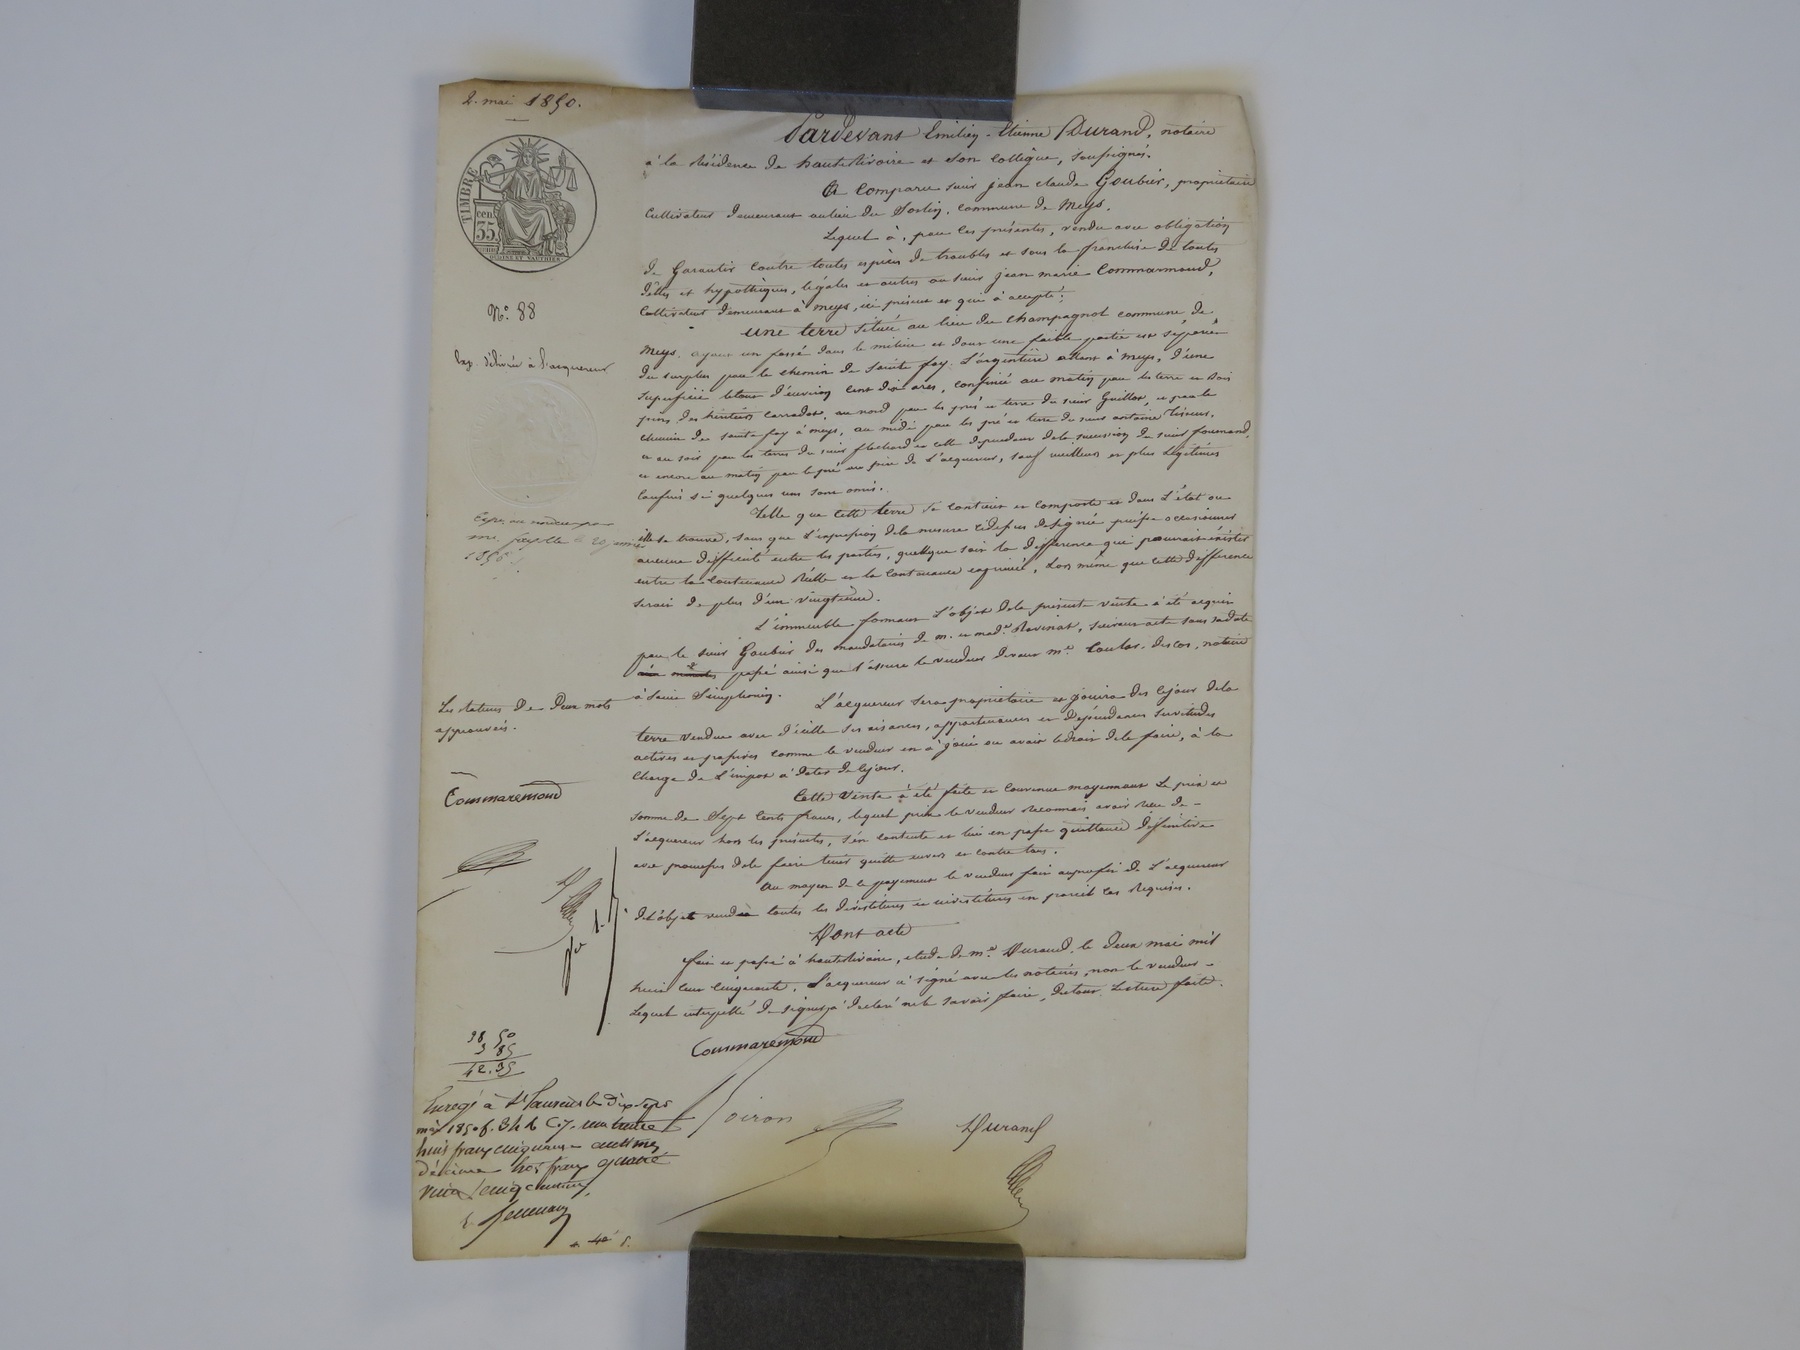 2. mai 1850.
Pardevant Emilien-Etienne Durand, notaire
à la Résidence de hauterivoire et son collègue, soussignés.
A comparu sieur jean claude Goubier, propriétaire
Cultivateur demeurant au lieu du Sortin, commune de Meys.
Lequel à, par ces présentes, vendu avec obligation
de Garantir contre toutes espèces de troubles et sous la franchise de toutes
dettes et hypothèques, légales et autres au sieur jean marie Commarmond,
Cultivateur demeurant à meys, ici présent et qui à accepté;
une terre située au lieu du Champagnol commune de
Meys. ayant un fossé dans le milieu et dont une faible partie est séparée
du surplus par le chemin de sainte foy L'argentière allant à meys, d'une
superficie totale d'environ cent dix ares, confinée au matin par les terre et bois
pins des héritiers Carradot, au nord par les pré et terre du sieur Guillot, et par le
chemin de sainte foy à meys, au midi par les pré et terre du sieur antoine
et au soir par les terres du sieur flachard et celle dépendant de la succession du sieur
et encore au matin par le pré au pin de L'acquereur, sauf meilleurs et plus légitimes
confins si quelques uns sont omis.
Telle que cette terre se contient et comporte et dans L'état ou
elle se trouve, sans que L'expression de la mesure cidessus désignée puisse occasionner
aucune difficulté entre les parties, quelque soit la différence qui pourrait éxister
entre la contenance Réelle et la contenance exprimée, Lors même que cette différence
serait de plus d'un vingtième.
L'immeuble formant L'objet de la présente vente à été acquis
par le sieur Goubier des mandataires de m. et mad.e Ravinat, suivant acte sans sa date
passé ainsi que l'assure le vendeur devant m.e Coulas. descos, notaire
à Saint Simphorien.
L'acquereur sera propriétaire et jouira dès cejour de la
terre vendue avec d'icelle ses aisances, appartenances et dépendances servitudes
actives et passives comme le vendeur en à joui ou avait le droit de le faire, à la
charge de L'impot à dater de cejour.
Cette Vente à été faite et convenue moyennant Le prix et
somme de Sept Cents francs, lequel prix le vendeur Reconnait avoir reçu de
L'acquereur hors les présentes, s'en contente et lui en passe quittance définitive
avec promesse de le faire tenir quitte envers et contre tous.
Au moyen de ce payement le vendeur fait au profit de L'acquereur
de L'objet vendu toutes les dévestitures et investitures en pareil cas Requises.
Dont acte
fait et passé à hauterivoire, étude de m.e Durand. le deux mai mil
huit cent cinquante. L'acquereur à signé avec les notaires, non le vendeur
Lequel interpellé de signer à déclaré ne le savoir faire, de tout. Lecture faite.
Commaremond
Soiron
Durand
TIMBRE
cen.
35.
N.° 88
Exp. délivrée à L'acquereur
1850
Les Ratures De Deux mots
approuvées.
Commaremond
38 50
3 85
42.35
Enregé à St Laurent le dix sept
mai 1850 f. 34 R C. 7. reçu trente
huit francs cinquante centimes
décime trois francs quatre
vingt cinq centimes